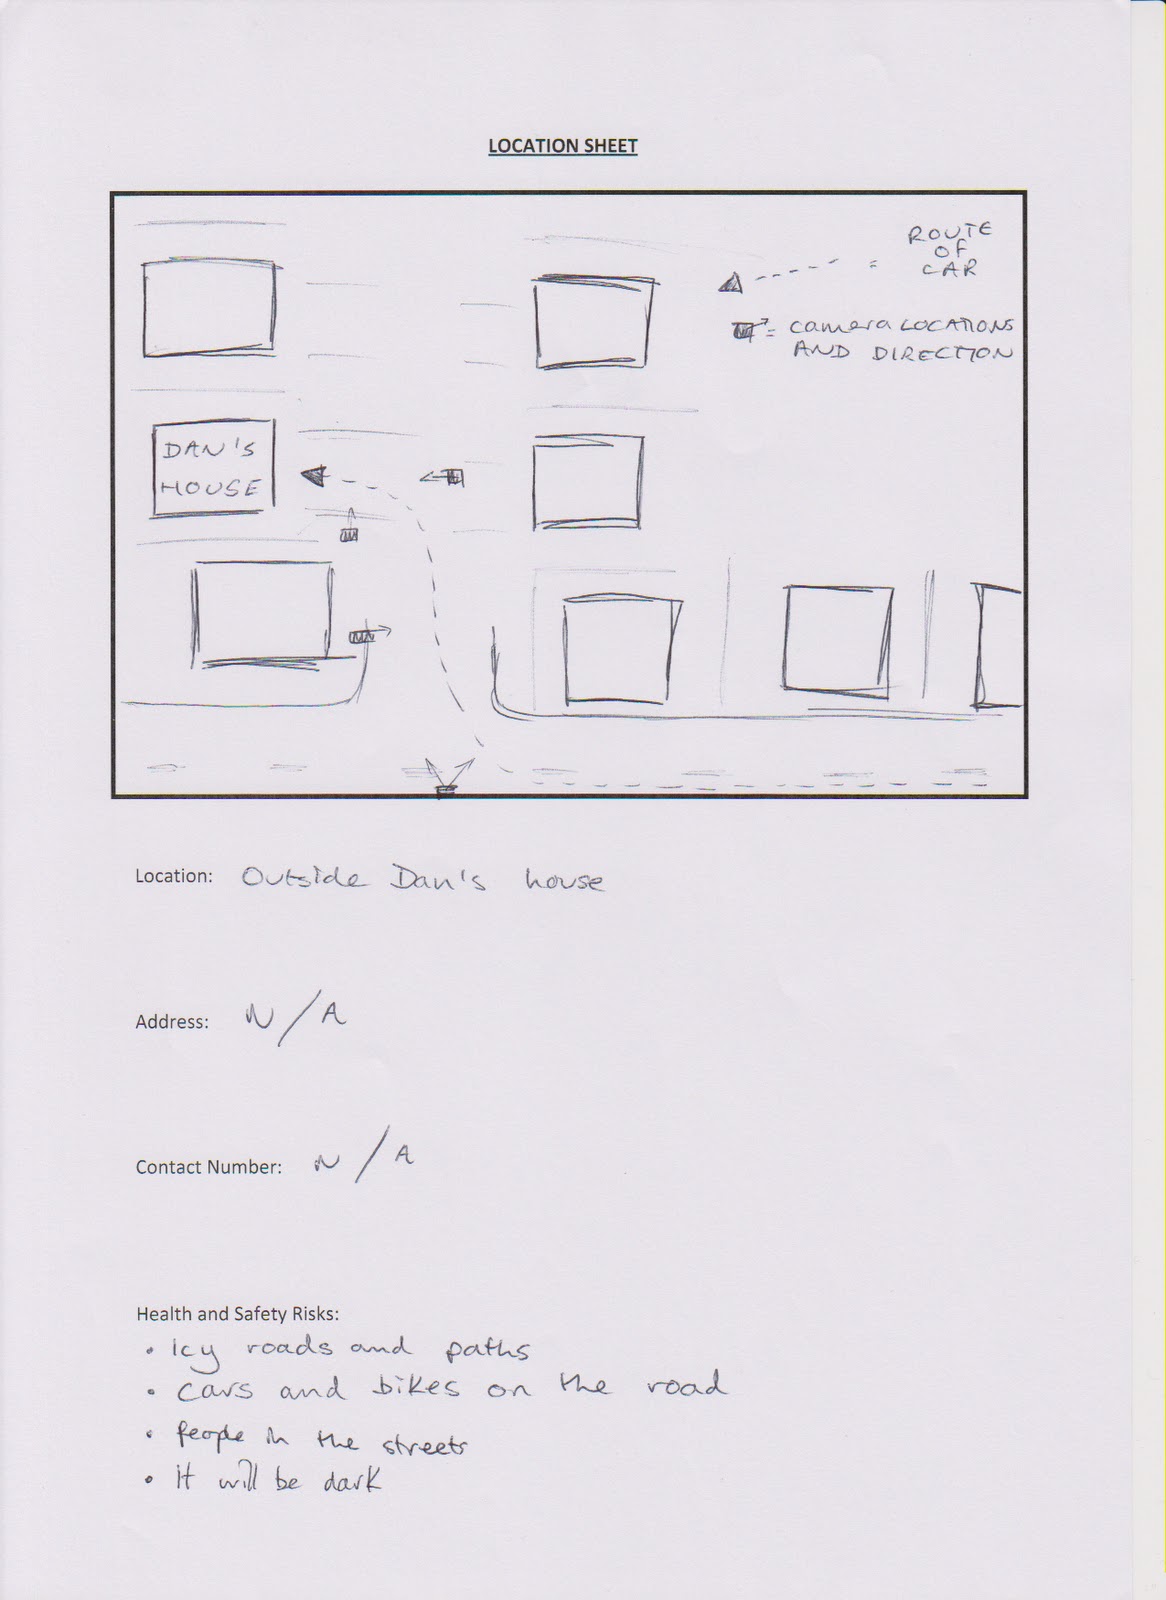 LOCATION SHEET
ROUTE
OF
CAR
=
= camera LOCATIONS
AND DIRECTION
DAN'S
HOUSE
Location: Outside Dan's house
Address: N/A
Contact Number: N/A
Health and Safety Risks:
• Icy roads and paths
• cars and bikes on the road
• People in the streets
• It will be dark